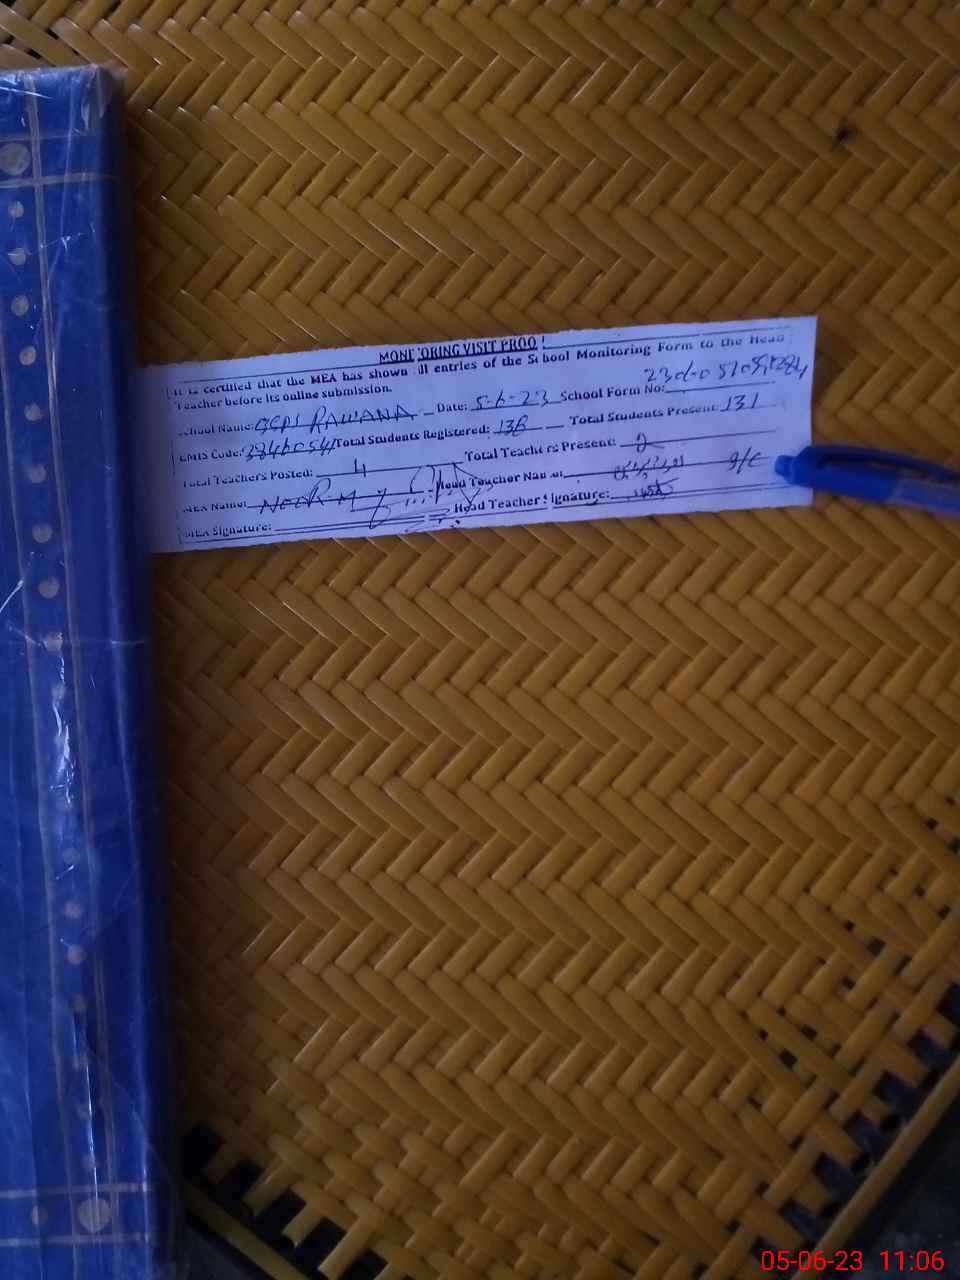 MONITORING VISIT PROO
It is certified that the MEA has shown all entries of the School Monitoring Form to the Head
Teacher before its online submission.
School Name: GGPS RAWANA Date: 5-6-23 School Form No:
EMIS Code: 38460541 Total Students Registered: 138 Total Students Present: 131
Total Teachers Posted: 4 Total Teachers Present: 2
MEA Name: NOOR-M Head Teacher Name: I/C
MEA Signature: Head Teacher Signature:
05-06-23 11:06